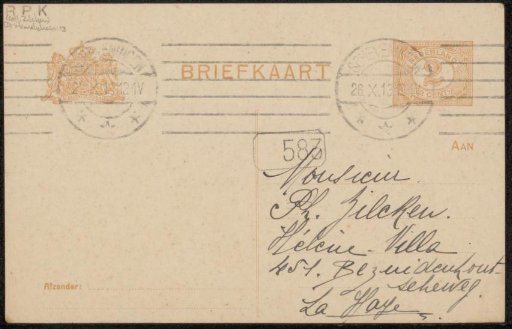 R.P.K
BRIEFKAART
26.X.13
AAN
583
Monsieur
Ph. Zilcken.
Hélène-Villa
451. Bezuidenhout-
scheweg.
La Haye.
Afzender: